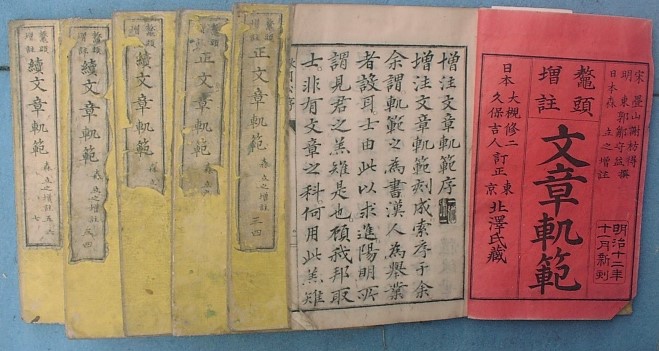 宋 疊山謝枋得撰
明 東郭鄒守益
日本森立之增註
鼇頭
增註
文章軌範
明治十二年
十一月新刻
日本 大槻修二
久保吉人訂正
東京 北澤氏藏
增注文章軌範序
增注文章軌範刻成索序于余
余謂軌範之為書漢人為舉業
者設耳士由此以求進陽明所
謂見君之羔雉是也顧我邦取
士非有文章之科何用此羔雉
鼇頭增註
正文章軌範
森立之增註
三四
正文章軌範
續文章軌範
續文章軌範
森立之增註
三四
鼇頭增註
續文章軌範
森立之增註
五六七